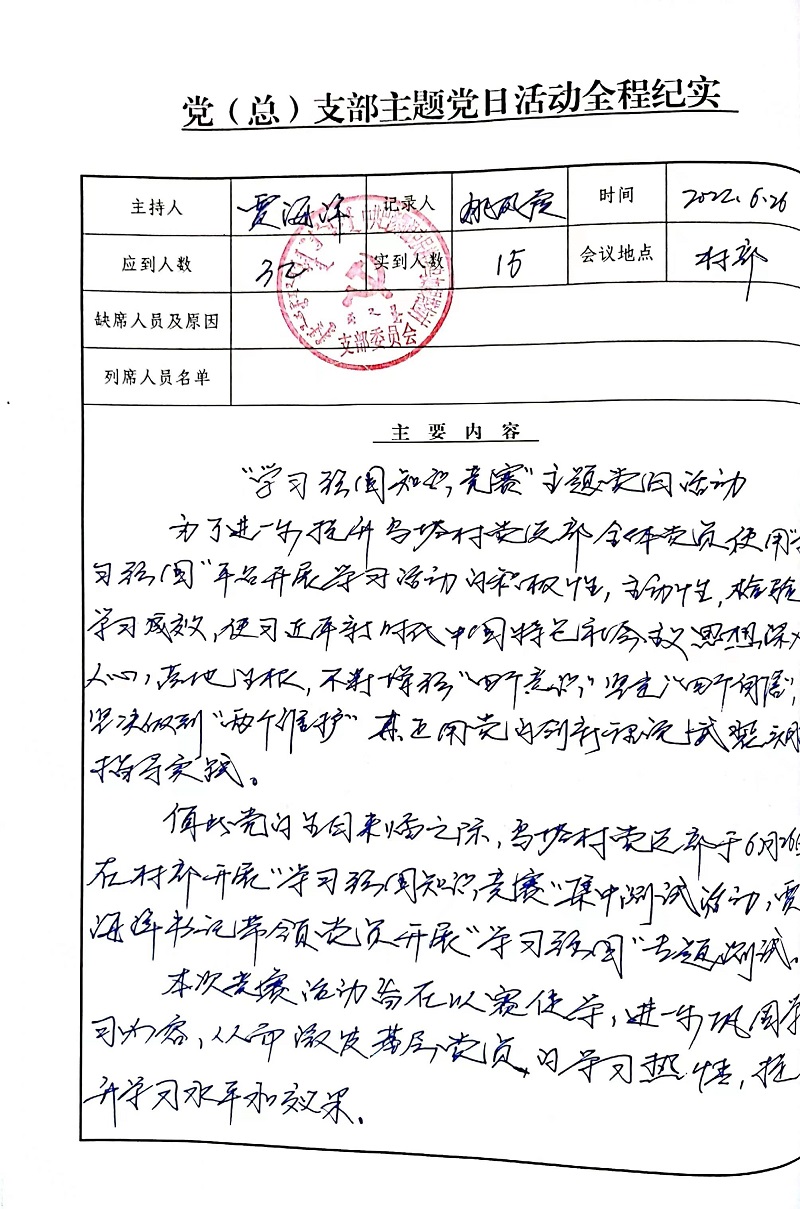 党（总）支部主题党日活动全程纪实
主持人 贾海洋 记录人 姚凤霞 时间 2022.6.26
应到人数 32 实到人数 15 会议地点 村部
缺席人员及原因
支部委员会
列席人员名单
主要内容
“学习强国知识竞赛”主题党日活动
为了进一步提升乌塔村党支部全体党员使用“学
习强国”平台开展学习活动的积极性，主动性，检验
学习成效，使习近平新时代中国特色社会主义思想深入
人心，落地生根，不断增强“四个意识”坚定“四个自信”，
坚决做到“两个维护”真正用党的创新理论武装头脑
指导实践。
值此党的生日来临之际，乌塔村党支部于6月26日
在村部开展“学习强国知识竞赛”集中测试活动，贾
海洋书记带领党员开展“学习强国”专题测试。
本次竞赛活动旨在以赛促学，进一步巩固学
习内容，从而激发基层党员的学习热情，提
升学习水平和效果.